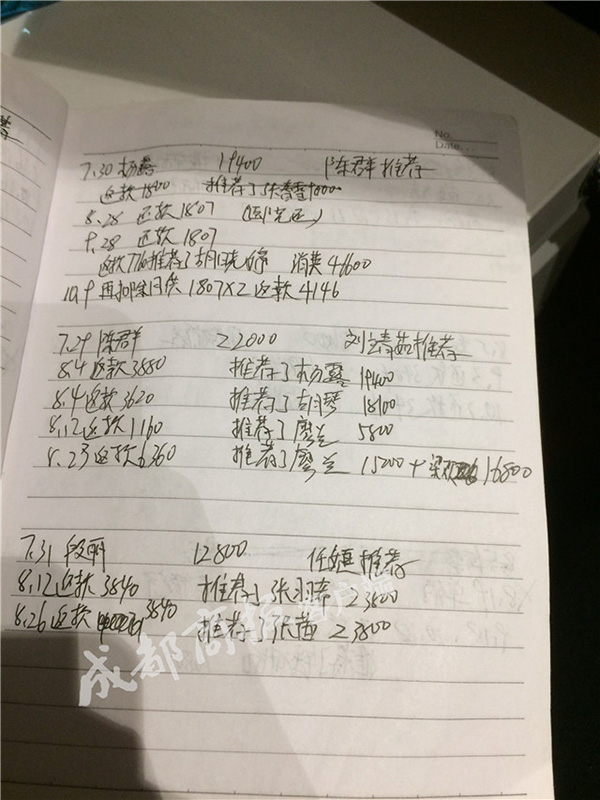 No.
Date.
7.30 杨露 19400 陈群推荐
返款1800 推荐了张春雪9000
8.28 还款1807 (
9.28 还款1807
返款7760推荐了胡 消费48600
10.9 再扣除月供 1807X2 返款4146
7.29 陈群 22000 刘靖茹推荐
8.4返款3880 推荐了杨露 19400
8.4返款3620 推荐了胡琴 18100
8.12返款1160 推荐了廖兰 5800
8.23返款6360 推荐了廖兰 15000 + 16800
7.31 段丽 12800 任 推荐
8.12返款3840 推荐了张羽希 23800
8.26返款 3840 推荐了张茜 23800
成都商报客户端